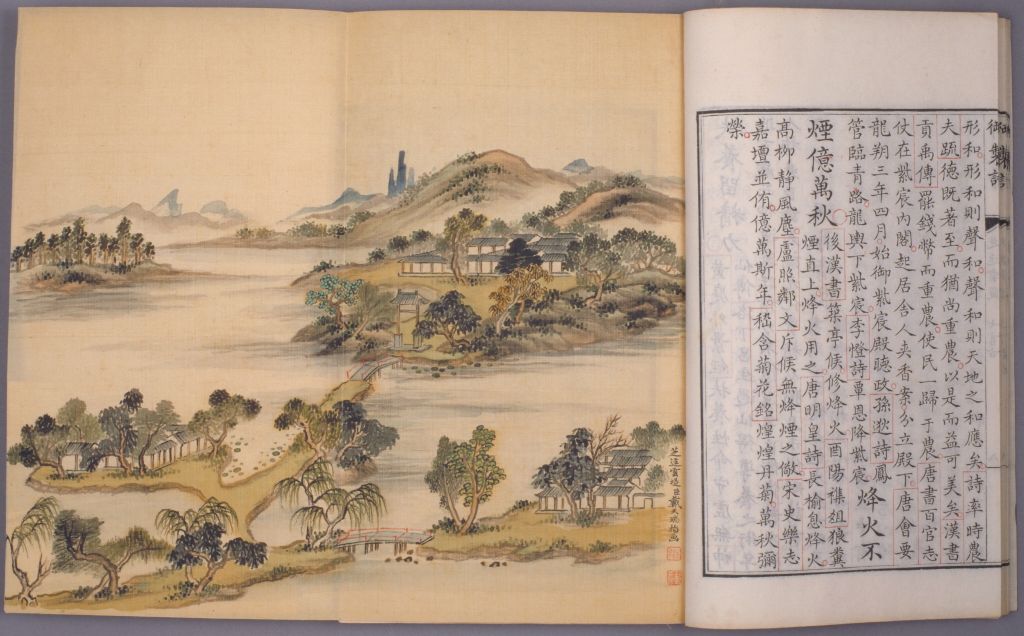 御製詩
形和形和則聲和聲和則天地之和應矣詩率時農
夫疏德既著至而猶尚重農以是而益可美矣漢書
貢禹傳罷錢幣而重農使民一歸于農唐書百官志
仗在紫宸內閣起居舍人夾香案分立殿下唐會要
龍朔三年四月始御紫宸殿聽政孫逖詩鳳
管臨青路龍輿下紫宸李憕詩覃恩降紫宸
烽火不
煙億萬秋
後漢書築亭候修烽火酉陽雜俎狼糞
煙直上烽火用之唐明皇詩長榆息烽火
高柳靜風塵盧照鄰文斥候無烽煙之儆宋史樂志
嘉壇並侑億萬斯年嵇含菊花銘煌煌丹菊萬秋彌
榮
芝逕雲堤臣戴天瑞恭畫